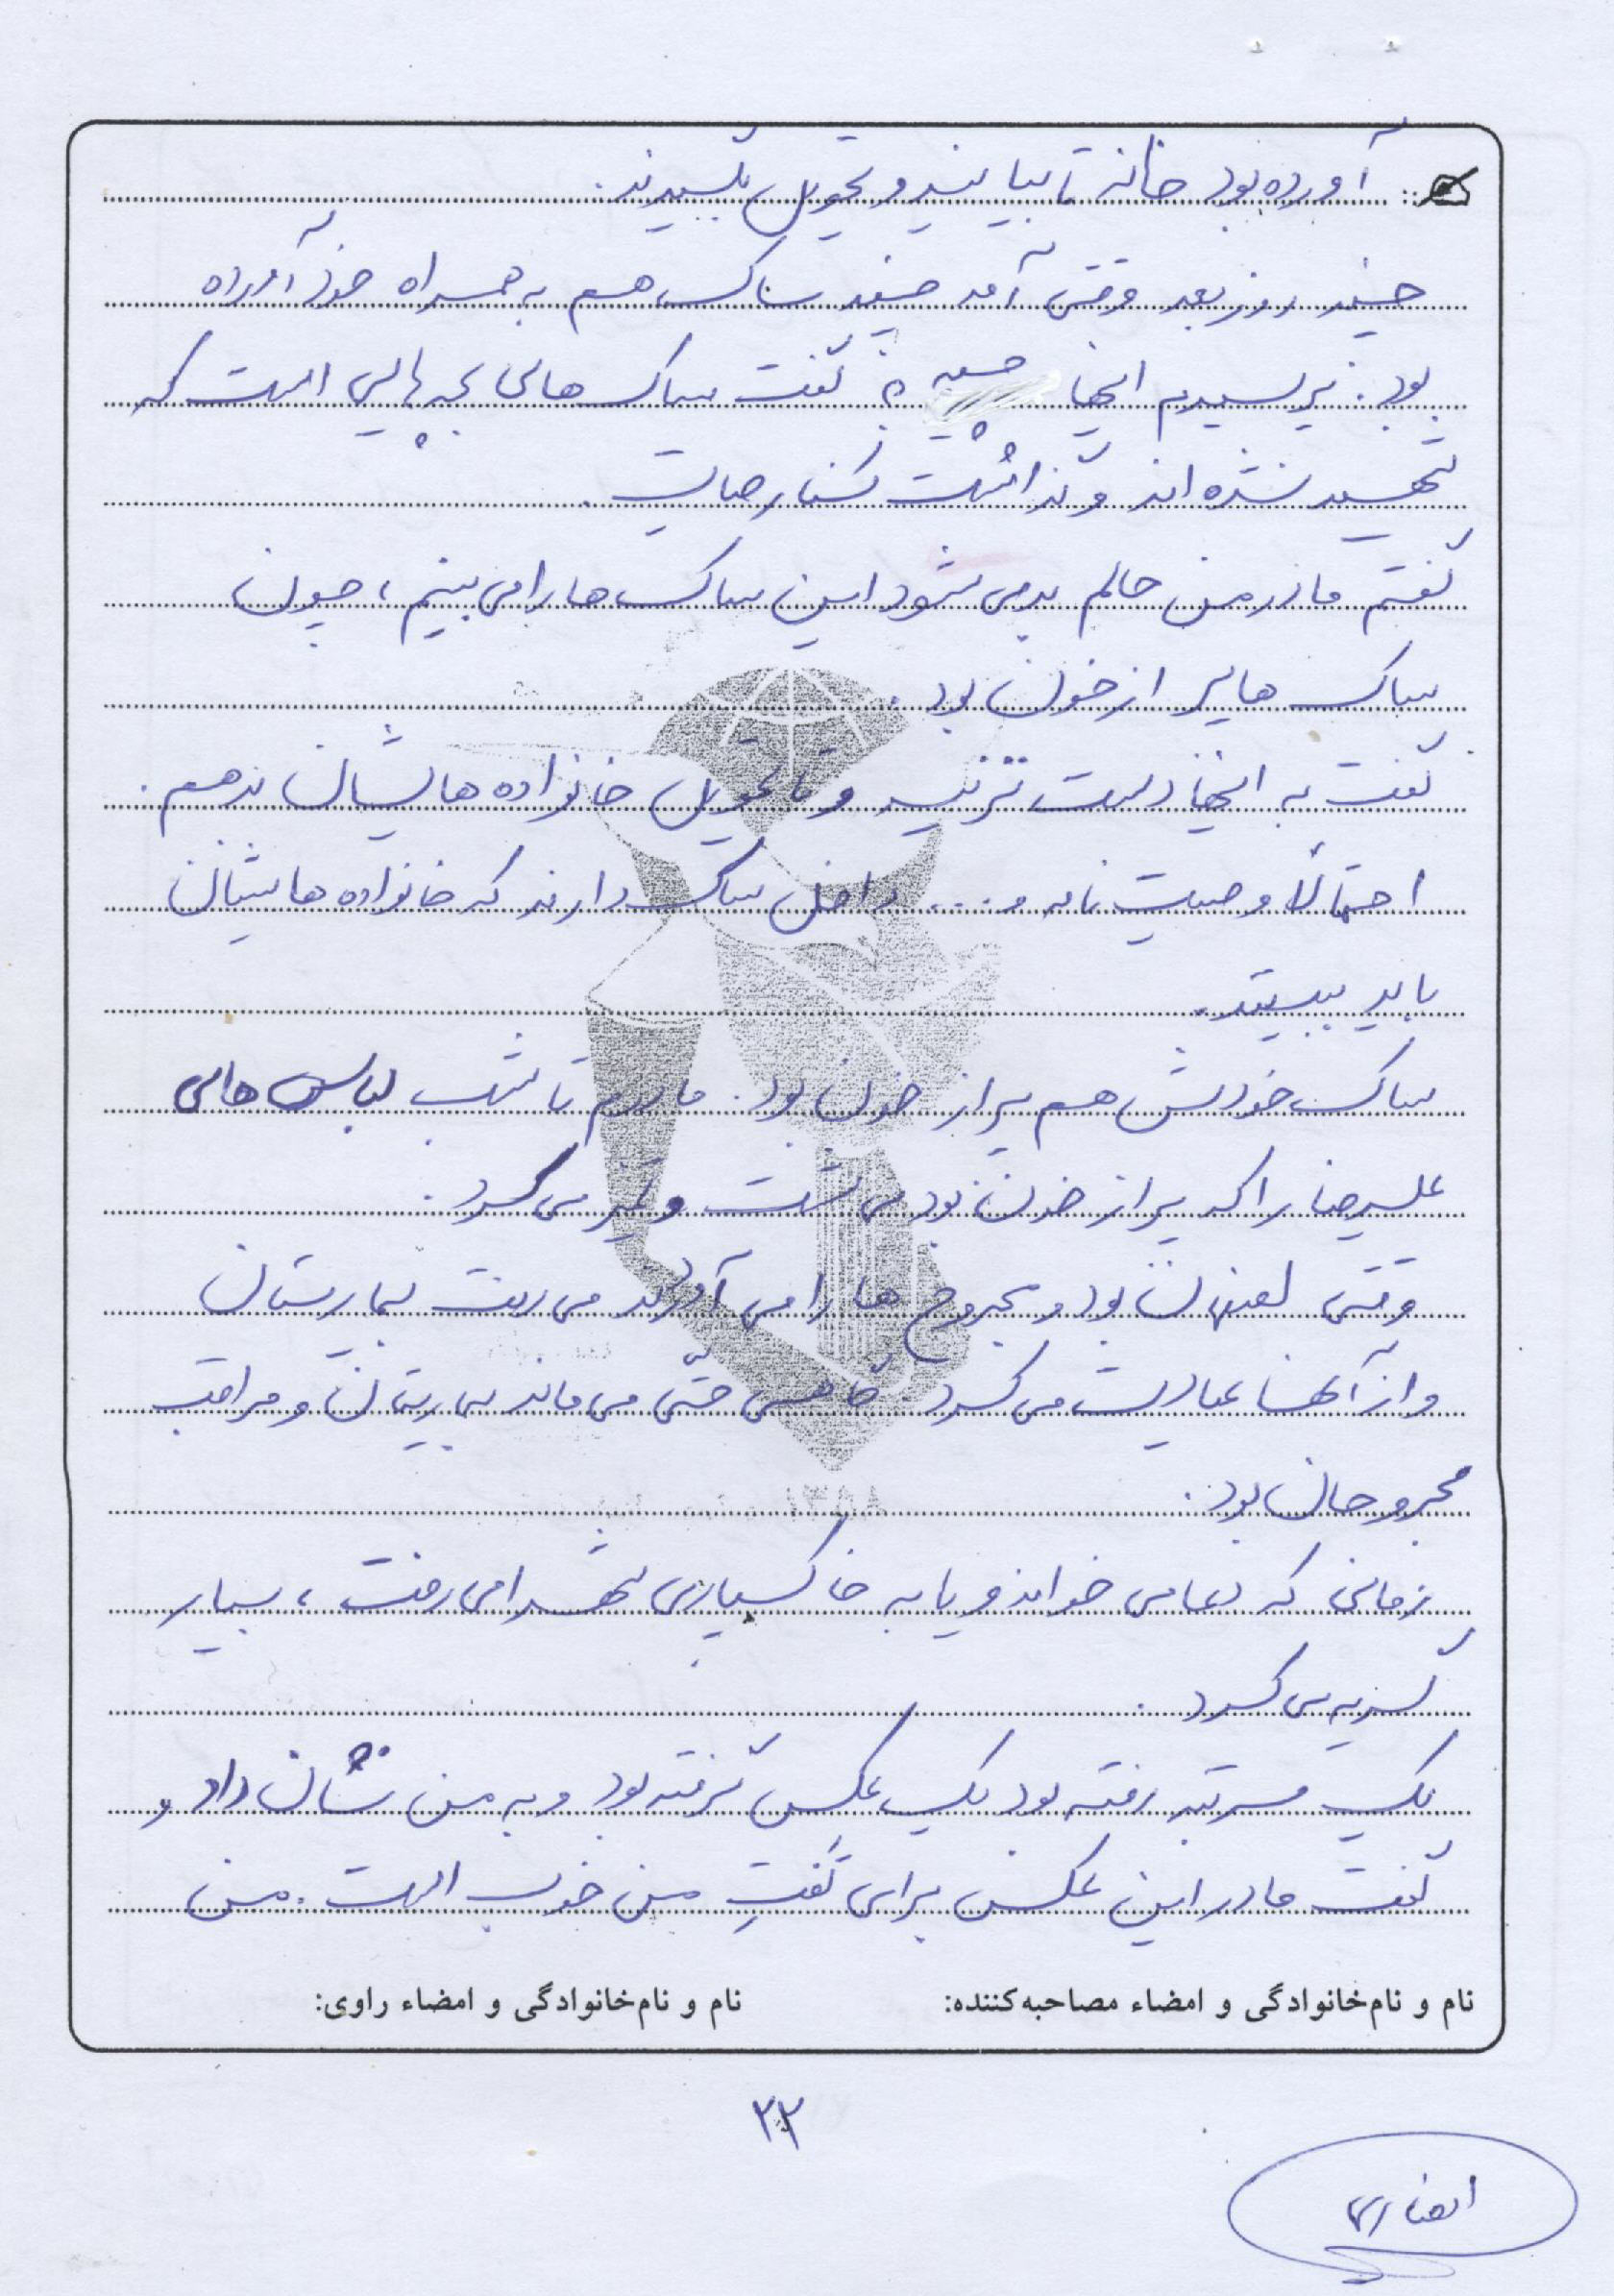 آورده بود خانه تا بیایند و تحویل بگیرند.
چند روز بعد وقتی آمد چند ساک هم به همراه خود آورده
بود. پرسیدم اینها چیه؟ گفت ساک های بچه هایی است که
شهید شده اند و گذاشت کنار حیاط.
گفتم مادر من حالم بد می شود این ساک ها را می بینم، چون
ساک ها پر از خون بود.
گفت به اینها دست نزنید و تا تحویل خانواده هایشان ندهم.
احتمالاً وصیت نامه و.... داخل ساک دارند که خانواده هایشان
باید ببینند.
ساک خودش هم پر از خون بود. مادرم تا شب لباس های
علیرضا را که پر از خون بود می شست و تمیز می کرد.
وقتی اصفهان بود و مجروح ها را می آوردند می رفت بیمارستان
و از آنها عیادت می کرد. گاهی حتی می ماند بیمارستان و مراقب
مجروحان بود.
زمانی که دعا می خواند و یا به خاکسپاری شهدا می رفت، بسیار
گریه می کرد.
یک مرتبه رفته بود یک عکس گرفته بود و به من نشان داد و
گفت مادر این عکس برای گفتِ من خوب است. من
نام و نام‌خانوادگی و امضاء مصاحبه‌کننده:
نام و نام‌خانوادگی و امضاء راوی:
۲۲
انصاری